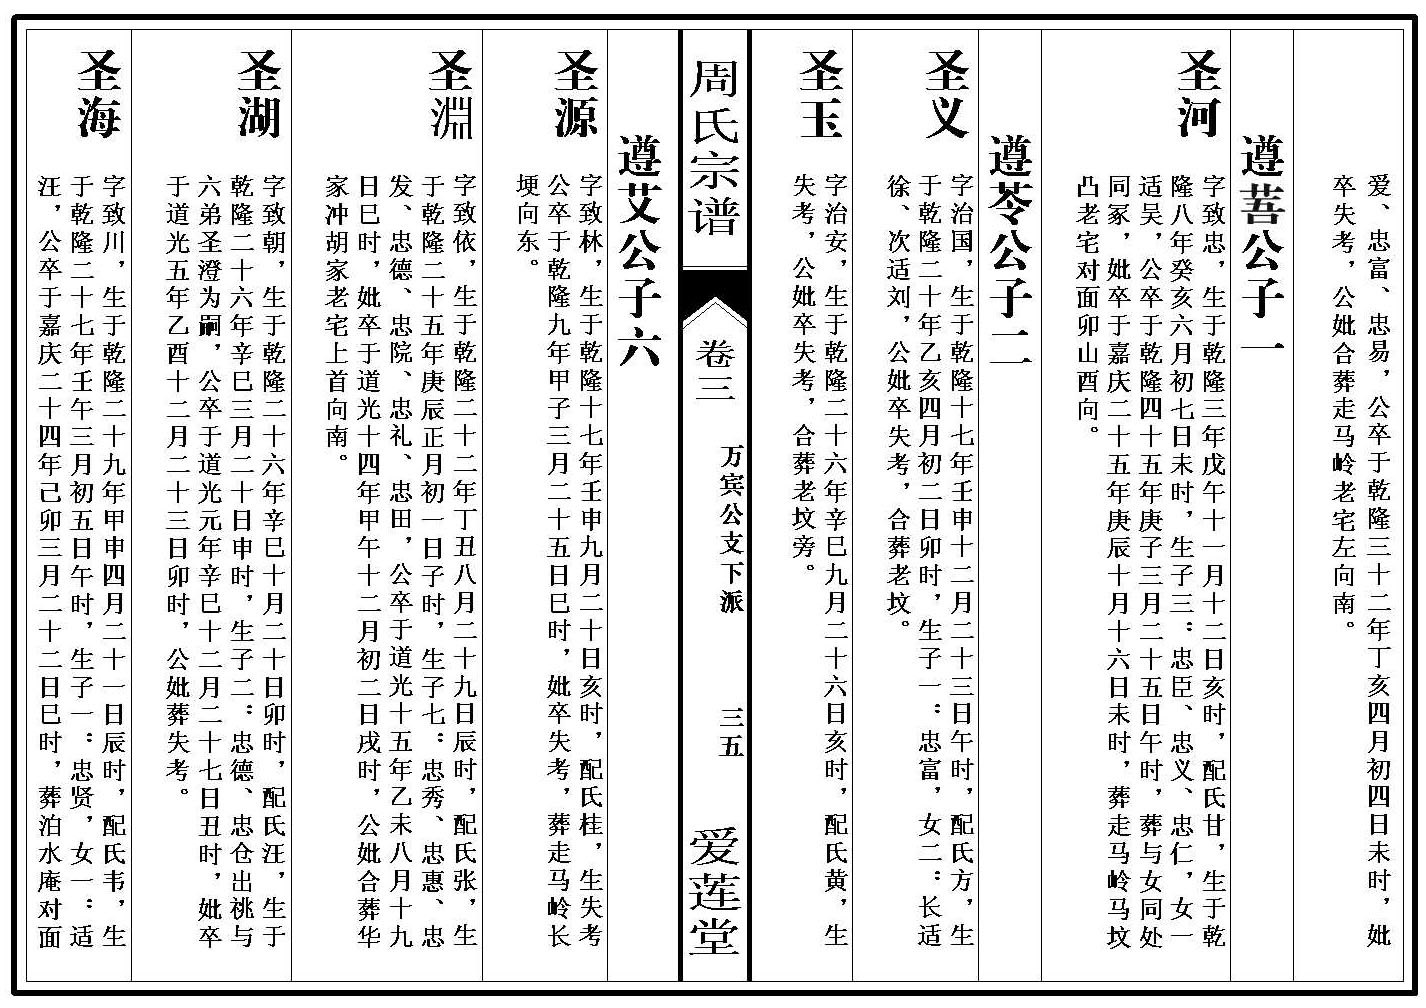 爱、忠富、忠易，公卒于乾隆三十二年丁亥四月初四日未时，妣
卒失考，公妣合葬走马岭老宅左向南。
遵菩公子一
圣河
字致忠，生于乾隆三年戊午十一月十二日亥时，配氏甘，生于乾
隆八年癸亥六月初七日未时，生子三：忠臣、忠义、忠仁，女一
适吴，公卒于乾隆四十五年庚子三月二十五日午时，葬与女同处
同冢，妣卒于嘉庆二十五年庚辰十月十六日未时，葬走马岭马坟
凸老宅对面卯山酉向。
遵苓公子二
圣义
字治国，生于乾隆十七年壬申十二月二十三日午时，配氏方，生
于乾隆二十年乙亥四月初二日卯时，生子一：忠富，女二：长适
徐、次适刘，公妣卒失考，合葬老坟。
圣玉
字治安，生于乾隆二十六年辛巳九月二十六日亥时，配氏黄，生
失考，公妣卒失考，合葬老坟旁。
周氏宗谱
卷三
万宾公支下派
三五
爱莲堂
遵艾公子六
圣源
字致林，生于乾隆十七年壬申九月二十日亥时，配氏桂，生失考
公卒于乾隆九年甲子三月二十五日巳时，妣卒失考，葬走马岭长
埂向东。
圣淵
字致依，生于乾隆二十二年丁丑八月二十九日辰时，配氏张，生
于乾隆二十五年庚辰正月初一日子时，生子七：忠秀、忠惠、忠
发、忠德、忠院、忠礼、忠田，公卒于道光十五年乙未八月十九
日巳时，妣卒于道光十四年甲午十二月初二日戌时，公妣合葬华
家冲胡家老宅上首向南。
圣湖
字致朝，生于乾隆二十六年辛巳十月二十日卯时，配氏汪，生于
乾隆二十六年辛巳三月二十日申时，生子二：忠德、忠仓出祧与
六弟圣澄为嗣，公卒于道光元年辛巳十二月二十七日丑时，妣卒
于道光五年乙酉十二月二十三日卯时，公妣葬失考。
圣海
字致川，生于乾隆二十九年甲申四月二十一日辰时，配氏韦，生
于乾隆二十七年壬午三月初五日午时，生子一：忠贤，女一：适
汪，公卒于嘉庆二十四年己卯三月二十二日巳时，葬泊水庵对面